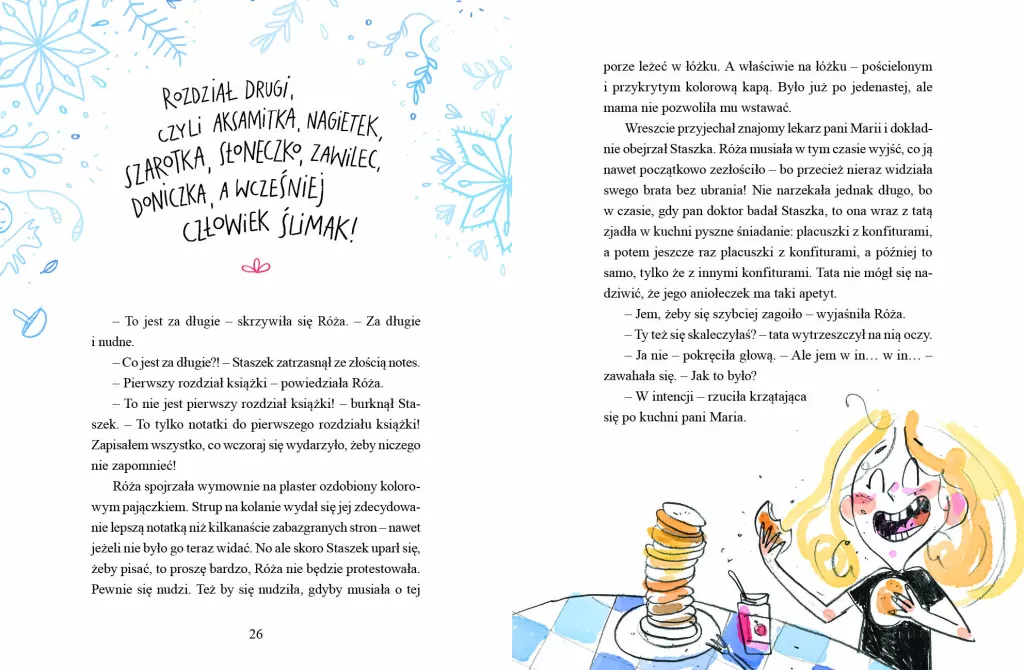 ROZDZIAŁ DRUGI,
CZYLI AKSAMITKA, NAGIETEK,
SZAROTKA, SŁONECZKO, ZAWILEC,
DONICZKA, A WCZEŚNIEJ
CZŁOWIEK ŚLIMAK!
– To jest za długie – skrzywiła się Róża. – Za długie
i nudne.
– Co jest za długie?! – Staszek zatrzasnął ze złością notes.
– Pierwszy rozdział książki – powiedziała Róża.
– To nie jest pierwszy rozdział książki! – burknął Sta-
szek. – To tylko notatki do pierwszego rozdziału książki!
Zapisałem wszystko, co wczoraj się wydarzyło, żeby niczego
nie zapomnieć!
Róża spojrzała wymownie na plaster ozdobiony koloro-
wym pajączkiem. Strup na kolanie wydał się jej zdecydowa-
nie lepszą notatką niż kilkanaście zabazgranych stron – nawet
jeżeli nie było go teraz widać. No ale skoro Staszek uparł się,
żeby pisać, to proszę bardzo, Róża nie będzie protestowała.
Pewnie się nudzi. Też by się nudziła, gdyby musiała o tej
26
porze leżeć w łóżku. A właściwie na łóżku – pościelonym
i przykrytym kolorową kapą. Było już po jedenastej, ale
mama nie pozwoliła mu wstawać.
Wreszcie przyjechał znajomy lekarz pani Marii i dokład-
nie obejrzał Staszka. Róża musiała w tym czasie wyjść, co ją
nawet początkowo zezłościło – bo przecież nieraz widziała
swego brata bez ubrania! Nie narzekała jednak długo, bo
w czasie, gdy pan doktor badał Staszka, to ona wraz z tatą
zjadła w kuchni pyszne śniadanie: placuszki z konfiturami,
a potem jeszcze raz placuszki z konfiturami, a później to
samo, tylko że z innymi konfiturami. Tata nie mógł się na-
dziwić, że jego aniołeczek ma taki apetyt.
– Jem, żeby się szybciej zagoiło – wyjaśniła Róża.
– Ty też się skaleczyłaś? – tata wytrzeszczył na nią oczy.
– Ja nie – pokręciła głową. – Ale jem w in… w in… –
zawahała się. – Jak to było?
– W intencji – rzuciła krzątająca
się po kuchni pani Maria.